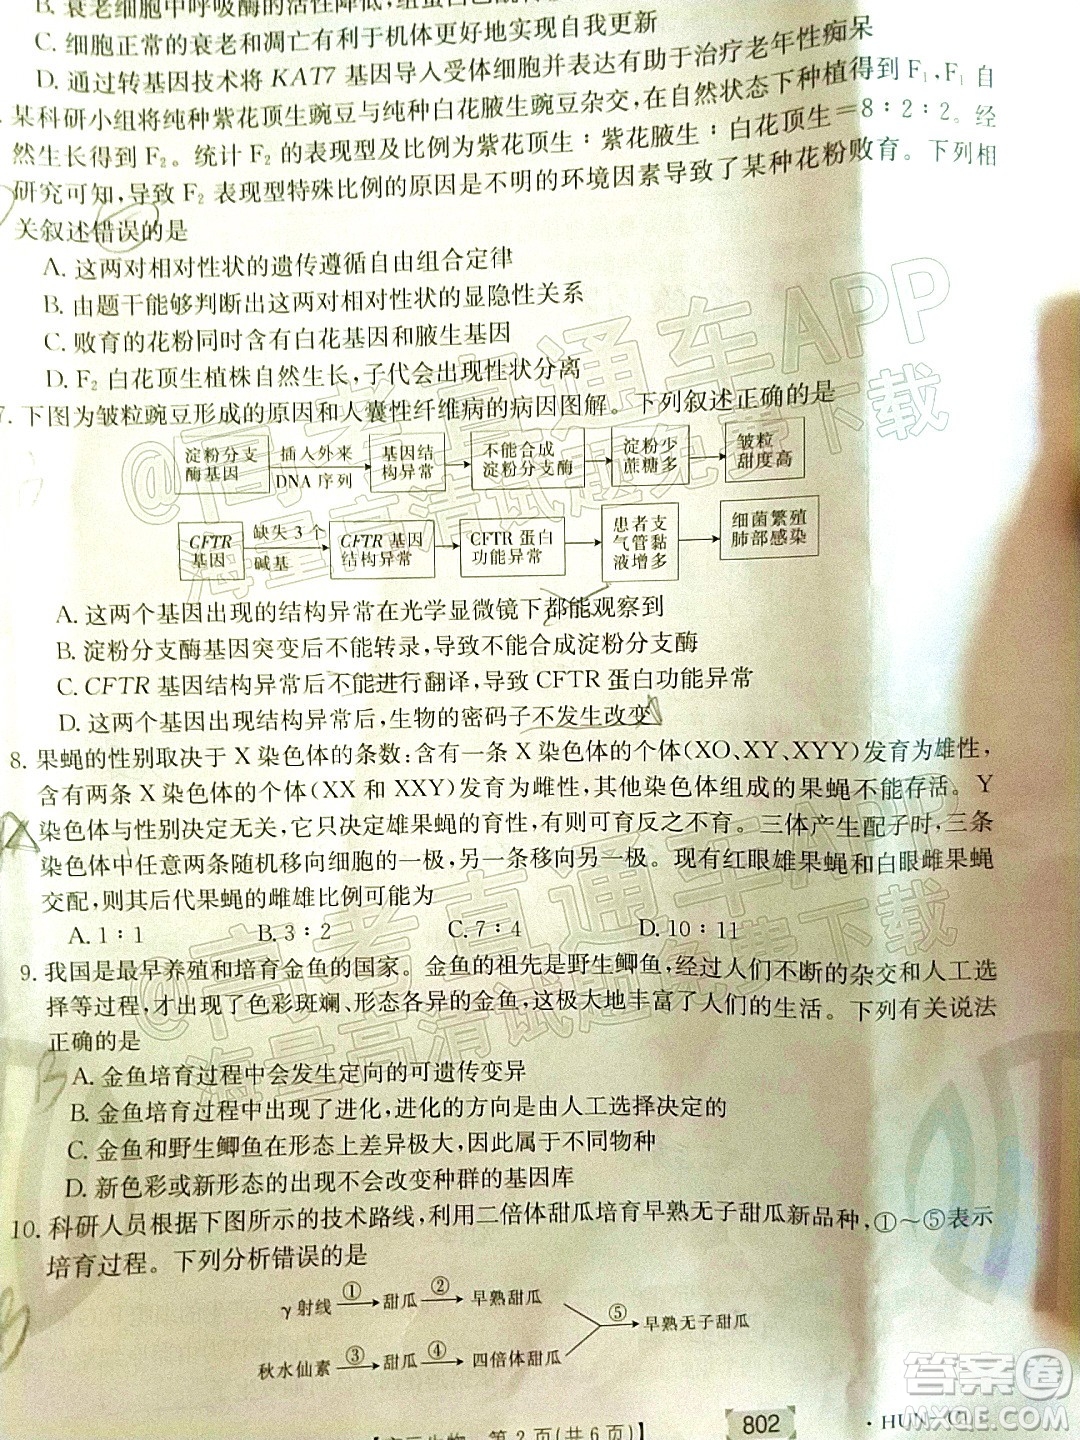 B. 衰老细胞中呼吸酶的活性降低,
C. 细胞正常的衰老和凋亡有利于机体更好地实现自我更新
D. 通过转基因技术将 KAT7 基因导入受体细胞并表达有助于治疗老年性痴呆
某科研小组将纯种紫花顶生豌豆与纯种白花腋生豌豆杂交,在自然状态下种植得到 F₁,F₁ 自
然生长得到 F₂。统计 F₂ 的表现型及比例为紫花顶生∶紫花腋生∶白花顶生=8∶2∶2。经
研究可知,导致 F₂ 表现型特殊比例的原因是不明的环境因素导致了某种花粉败育。下列相
关叙述错误的是
A. 这两对相对性状的遗传遵循自由组合定律
B. 由题干能够判断出这两对相对性状的显隐性关系
C. 败育的花粉同时含有白花基因和腋生基因
D. F₂ 白花顶生植株自然生长,子代会出现性状分离
7. 下图为皱粒豌豆形成的原因和人囊性纤维病的病因图解。下列叙述正确的是
淀粉分支酶基因 插入外来DNA 序列 基因结构异常 不能合成淀粉分支酶 淀粉少蔗糖多 皱粒甜度高
CFTR基因 缺失 3 个碱基 CFTR 基因结构异常 CFTR 蛋白功能异常 患者支气管黏液增多 细菌繁殖肺部感染
A. 这两个基因出现的结构异常在光学显微镜下都能观察到
B. 淀粉分支酶基因突变后不能转录,导致不能合成淀粉分支酶
C. CFTR 基因结构异常后不能进行翻译,导致 CFTR 蛋白功能异常
D. 这两个基因出现结构异常后,生物的密码子不发生改变
8. 果蝇的性别取决于 X 染色体的条数:含有一条 X 染色体的个体(XO、XY、XYY)发育为雄性,
含有两条 X 染色体的个体(XX 和 XXY)发育为雌性,其他染色体组成的果蝇不能存活。Y
染色体与性别决定无关,它只决定雄果蝇的育性,有则可育反之不育。三体产生配子时,三条
染色体中任意两条随机移向细胞的一极,另一条移向另一极。现有红眼雄果蝇和白眼雌果蝇
交配,则其后代果蝇的雌雄比例可能为
A. 1∶1 B. 3∶2 C. 7∶4 D. 10∶11
9. 我国是最早养殖和培育金鱼的国家。金鱼的祖先是野生鲫鱼,经过人们不断的杂交和人工选
择等过程,才出现了色彩斑斓、形态各异的金鱼,这极大地丰富了人们的生活。下列有关说法
正确的是
A. 金鱼培育过程中会发生定向的可遗传变异
B. 金鱼培育过程中出现了进化,进化的方向是由人工选择决定的
C. 金鱼和野生鲫鱼在形态上差异极大,因此属于不同物种
D. 新色彩或新形态的出现不会改变种群的基因库
10. 科研人员根据下图所示的技术路线,利用二倍体甜瓜培育早熟无子甜瓜新品种,①~⑤表示
培育过程。下列分析错误的是
γ 射线 ① 甜瓜 ② 早熟甜瓜
⑤ 早熟无子甜瓜
秋水仙素 ③ 甜瓜 ④ 四倍体甜瓜
第 2 页(共 6 页)】
802
·HUN
@高考直通车APP
海量高清试题免费下载
@高考直通车APP
海量高清试题免费下载
答案圈
MXQE.COM